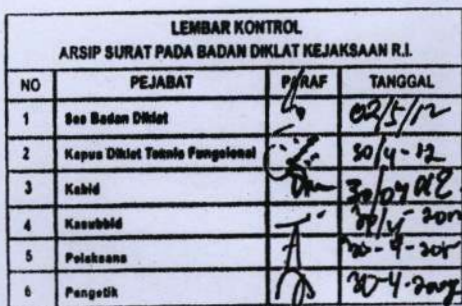 LEMBAR KONTROL
ARSIP SURAT PADA BADAN DIKLAT KEJAKSAAN R.I.
NO PEJABAT PARAF TANGGAL
1 Ses Badan Diklat 02/5/12
2 Kapus Diklat Teknis Fungsional 30/4-12
3 Kabid 30/04
4 Kasubbid
5 Pelaksana
6 Pengetik 30-4-